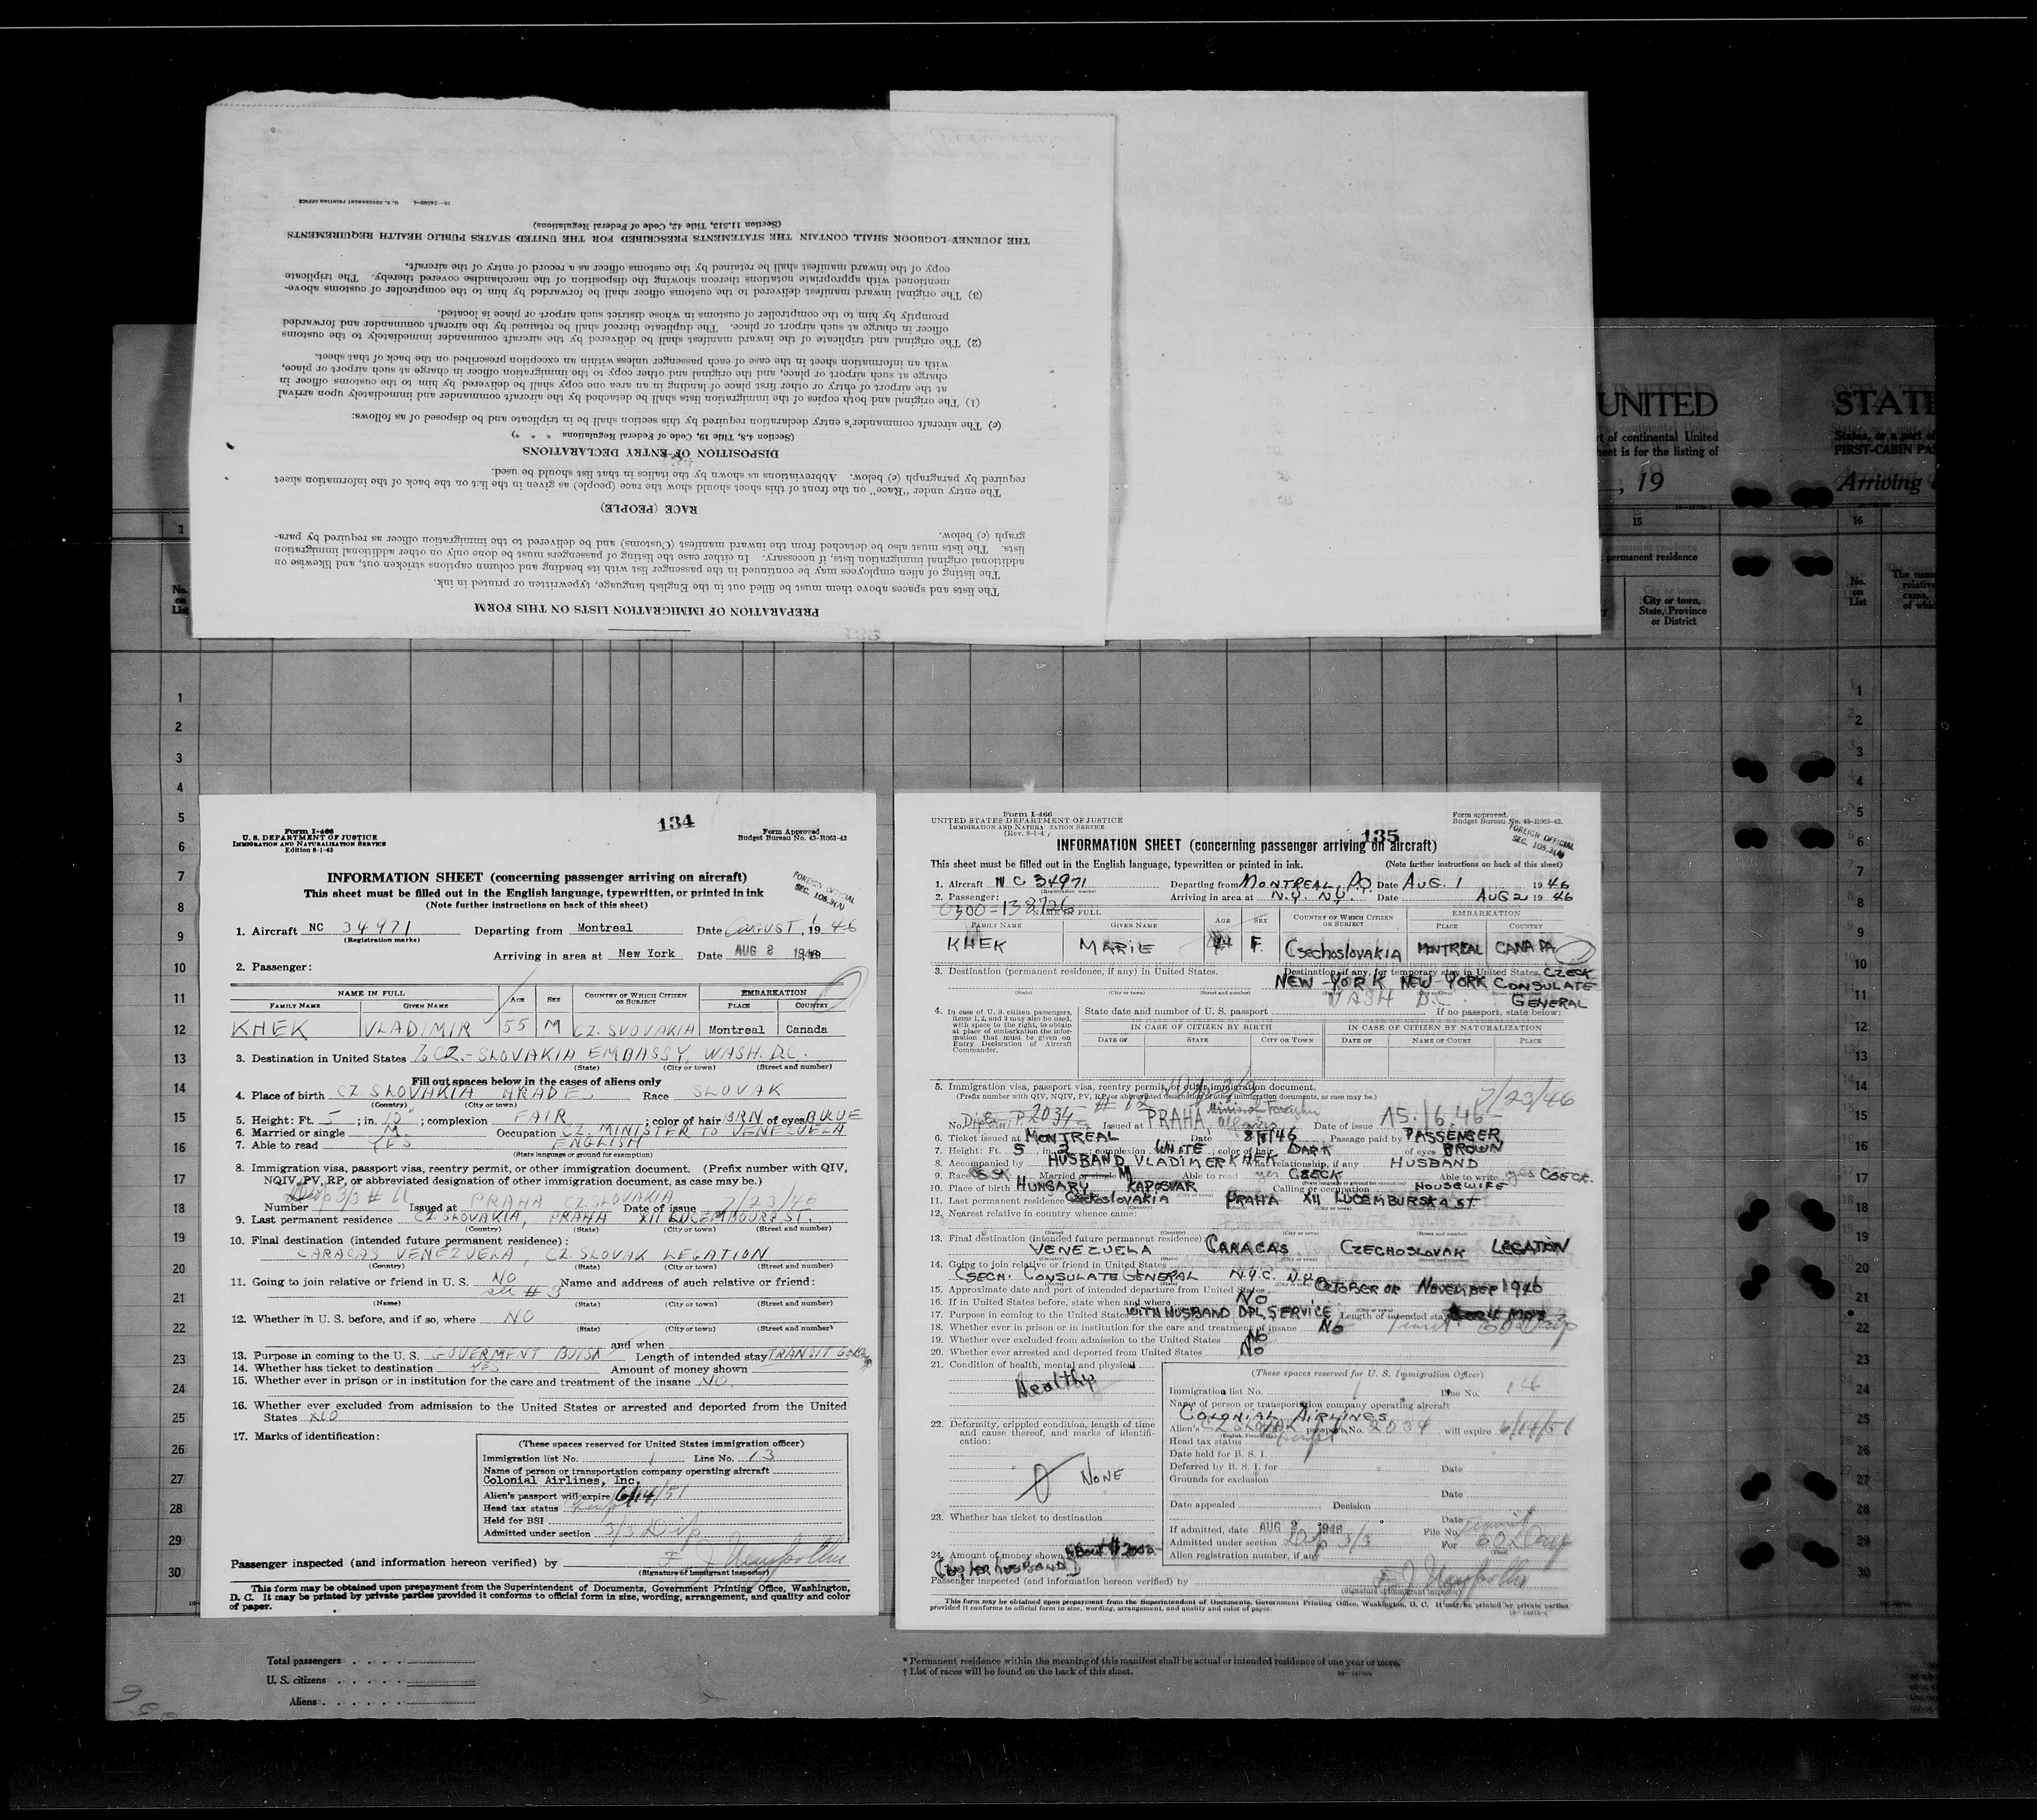 16—24598-4 U. S. GOVERNMENT PRINTING OFFICE
(Section 11.513, Title 42, Code of Federal Regulations)
THE JOURNEY LOGBOOK SHALL CONTAIN THE STATEMENTS PRESCRIBED FOR THE UNITED STATES PUBLIC HEALTH REQUIREMENTS
copy of the inward manifest shall be retained by the customs officer as a record of entry of the aircraft.
mentioned with appropriate notations thereon showing the disposition of the merchandise covered thereby. The triplicate
(3) The original inward manifest delivered to the customs officer shall be forwarded by him to the comptroller of customs above-
promptly by him to the comptroller of customs in whose district such airport or place is located.
officer in charge at such airport or place. The duplicate thereof shall be retained by the aircraft commander and forwarded
(2) The original and triplicate of the inward manifest shall be delivered by the aircraft commander immediately to the customs
with an information sheet in the case of each passenger unless within an exception prescribed on the back of that sheet.
charge at such airport or place, and the original and other copy to the immigration officer in charge at such airport or place,
at the airport of entry or other first place of landing in an area one copy shall be delivered by him to the customs officer in
(1) The original and both copies of the immigration lists shall be detached by the aircraft commander and immediately upon arrival
(c) The aircraft commander's entry declaration required by this section shall be in triplicate and be disposed of as follows:
(Section 4.8, Title 19, Code of Federal Regulations * * *)
DISPOSITION OF ENTRY DECLARATIONS
required by paragraph (c) below. Abbreviations as shown by the italics in that list should be used.
The entry under "Race" on the front of this sheet should show the race (people) as given in the list on the back of the information sheet
RACE (PEOPLE)
graph (c) below.
lists. The lists must also be detached from the inward manifest (Customs) and be delivered to the immigration officer as required by para-
additional original immigration lists, if necessary. In either case the listing of passengers must be done only on other additional immigration
The listing of alien employees may be continued in the passenger list with its heading and column captions stricken out, and likewise on
The lists and spaces above them must be filled out in the English language, typewritten or printed in ink.
PREPARATION OF IMMIGRATION LISTS ON THIS FORM
UNITED
rt of continental United
heet is for the listing of
, 19
15
permanent residence
City or town,
State, Province
or District
STATE
States, or a part of
FIRST-CABIN PA
Arriving
16
No.
on
List
1
No.
on
List
Form I-466
U. S. DEPARTMENT OF JUSTICE
IMMIGRATION AND NATURALIZATION SERVICE
Edition 8-1-43
134
Form Approved
Budget Bureau No. 43-R063-42
INFORMATION SHEET (concerning passenger arriving on aircraft)
This sheet must be filled out in the English language, typewritten, or printed in ink
(Note further instructions on back of this sheet)
FOREIGN OFFICIAL
SEC. 108.3(A)
1. Aircraft NC 34971 Departing from Montreal Date AUGUST 1, 1946
(Registration marks)
Arriving in area at New York Date AUG 2 19
2. Passenger:
NAME IN FULL
AGE SEX COUNTRY OF WHICH CITIZEN OR SUBJECT EMBARKATION
FAMILY NAME GIVEN NAME PLACE COUNTRY
KHEK VLADIMIR 55 M CZ. SVOVAKIA Montreal Canada
3. Destination in United States % CZ.-SLOVAKIA EMBASSY, WASH. D.C.
(State) (City or town) (Street and number)
Fill out spaces below in the cases of aliens only
4. Place of birth CZ SLOVAKIA Race SLOVAK
(Country) (City or town)
5. Height: Ft. 5; in. 10; complexion FAIR; color of hair BRN of eyes BULUE
6. Married or single M Occupation CZ. MINISTER TO VENEZUELA
7. Able to read YES ENGLISH
(State language or ground for exemption)
8. Immigration visa, passport visa, reentry permit, or other immigration document. (Prefix number with QIV,
NQIV, PV, RP, or abbreviated designation of other immigration document, as case may be.)
Number Dip 3/3 # 11 Issued at PRAHA CZ SLOVAKIA Date of issue 7/23/46
9. Last permanent residence CZ SLOVAKIA, PRAHA XII LUCEMBOURG ST.
(Country) (State) (City or town) (Street and number)
10. Final destination (intended future permanent residence):
CARACAS VENEZUELA, CZ. SLOVAK LEGATION
(Country) (State) (City or town) (Street and number)
11. Going to join relative or friend in U. S. NO Name and address of such relative or friend:
see # 3
(Name) (State) (City or town) (Street and number)
12. Whether in U. S. before, and if so, where NO
(State) (City or town) (Street and number)
and when
13. Purpose in coming to the U. S. GOVERMENT Length of intended stay TRANSIT 60 Days
14. Whether has ticket to destination YES Amount of money shown
15. Whether ever in prison or in institution for the care and treatment of the insane NO
16. Whether ever excluded from admission to the United States or arrested and deported from the United
States NO
17. Marks of identification:
(These spaces reserved for United States immigration officer)
Immigration list No. 1 Line No. 13
Name of person or transportation company operating aircraft
Colonial Airlines, Inc.
Alien's passport will expire 6/14/51
Head tax status
Held for BSI
Admitted under section 3/3 Dip
Passenger inspected (and information hereon verified) by
(Signature of immigrant inspector)
This form may be obtained upon prepayment from the Superintendent of Documents, Government Printing Office, Washington,
D. C. It may be printed by private parties provided it conforms to official form in size, wording, arrangement, and quality and color
of paper.
Form I-466
UNITED STATES DEPARTMENT OF JUSTICE
IMMIGRATION AND NATURALIZATION SERVICE
135
Form approved.
Budget Bureau No. 43-R063-42.
FOREIGN OFFICIAL
SEC. 108.3(A)
INFORMATION SHEET (concerning passenger arriving on aircraft)
This sheet must be filled out in the English language, typewritten or printed in ink. (Note further instructions on back of this sheet)
1. Aircraft NC 34971 Departing from MONTREAL, PQ Date AUG. 1 1946
(Registration marks)
2. Passenger: Arriving in area at N.Y. N.Y. Date AUG 2 1946
0300-138726
NAME IN FULL AGE SEX COUNTRY OF WHICH CITIZEN OR SUBJECT EMBARKATION
FAMILY NAME GIVEN NAME PLACE COUNTRY
KHEK MARIE 44 F. Csechoslovakia MONTREAL CANADA
3. Destination (permanent residence, if any) in United States. Destination, if any, for temporary stay in United States. CZECK
NEW-YORK NEW-YORK CONSULATE
GENERAL
WASH D.C.
(State) (City or town) (Street and number)
4. In case of U. S. citizen passengers,
items 1, 2, and 3 may also be used,
with space to the right, to obtain
at place of embarkation the infor-
mation that must be given on
Entry Declaration of Aircraft
Commander.
State date and number of U. S. passport If no passport, state below:
IN CASE OF CITIZEN BY BIRTH IN CASE OF CITIZEN BY NATURALIZATION
DATE OF STATE CITY OR TOWN DATE OF NAME OF COURT PLACE
5. Immigration visa, passport visa, reentry permit, or other immigration document.
(Prefix number with QIV, NQIV, PV, RP, or abbreviated designation of other immigration document, as case may be.)
7/23/46
No. P.2034 # 12 Issued at PRAHA, Date of issue 15./6.46-
6. Ticket issued at MONTREAL Date 8/1/46 Passage paid by PASSENGER
7. Height: Ft. 5, in. 2; complexion WHITE color of hair DARK of eyes BROWN
8. Accompanied by HUSBAND VLADIMER KHEK What relationship, if any HUSBAND
9. Race Married or single M Able to read yes CSECK Able to write yes CSECK.
10. Place of birth HUNGARY KAPOSVAR Calling or occupation HOUSEWIFE
11. Last permanent residence Csechoslovakia PRAHA XII LUCEMBURSKA ST.
12. Nearest relative in country whence came:
13. Final destination (intended future permanent residence)
VENEZUELA CARACAS CZECHOSLOVAK LEGATION
14. Going to join relative or friend in United States
CSECH. CONSULATE GENERAL N.Y.C. N.Y.
15. Approximate date and port of intended departure from United States OCTOBER OR NOVEMBER 1946
16. If in United States before, state when and where NO
17. Purpose in coming to United States WITH HUSBAND DPL, SERVICE Length of intended stay 60 Days
18. Whether ever in prison or in institution for the care and treatment of insane No
19. Whether ever excluded from admission to the United States No
20. Whether ever arrested and deported from United States No
21. Condition of health, mental and physical
Healthy
22. Deformity, crippled condition, length of time
and cause thereof, and marks of identifi-
cation:
NONE
23. Whether has ticket to destination
24. Amount of money shown About $ 2000-
(BY HER HUSBAND)
(These spaces reserved for U. S. Immigration Officer)
Immigration list No. 1 Line No. 14
Name of person or transportation company operating aircraft
COLONIAL AIRLINES
Alien's CZ SLOVAK passport No. 2034 will expire 6/14/51
Head tax status
Date held for B. S. I.
Deferred by B. S. I. for Date
Grounds for exclusion
Date
Date appealed Decision
Date
If admitted, date AUG 2 1946 File No.
Admitted under section Dip 3/3 For 60 Days
Alien registration number, if any
Passenger inspected (and information hereon verified) by
(Signature of immigrant inspector)
This form may be obtained upon prepayment from the Superintendent of Documents, Government Printing Office, Washington, D. C. It may be printed by private parties
provided it conforms to official form in size, wording, arrangement, and quality and color of paper.
1
2
3
4
5
6
7
8
9
10
11
12
13
14
15
16
17
18
19
20
21
22
23
24
25
26
27
28
29
30
Total passengers
U. S. citizens
Aliens
* Permanent residence within the meaning of this manifest shall be actual or intended residence of one year or more.
† List of races will be found on the back of this sheet.